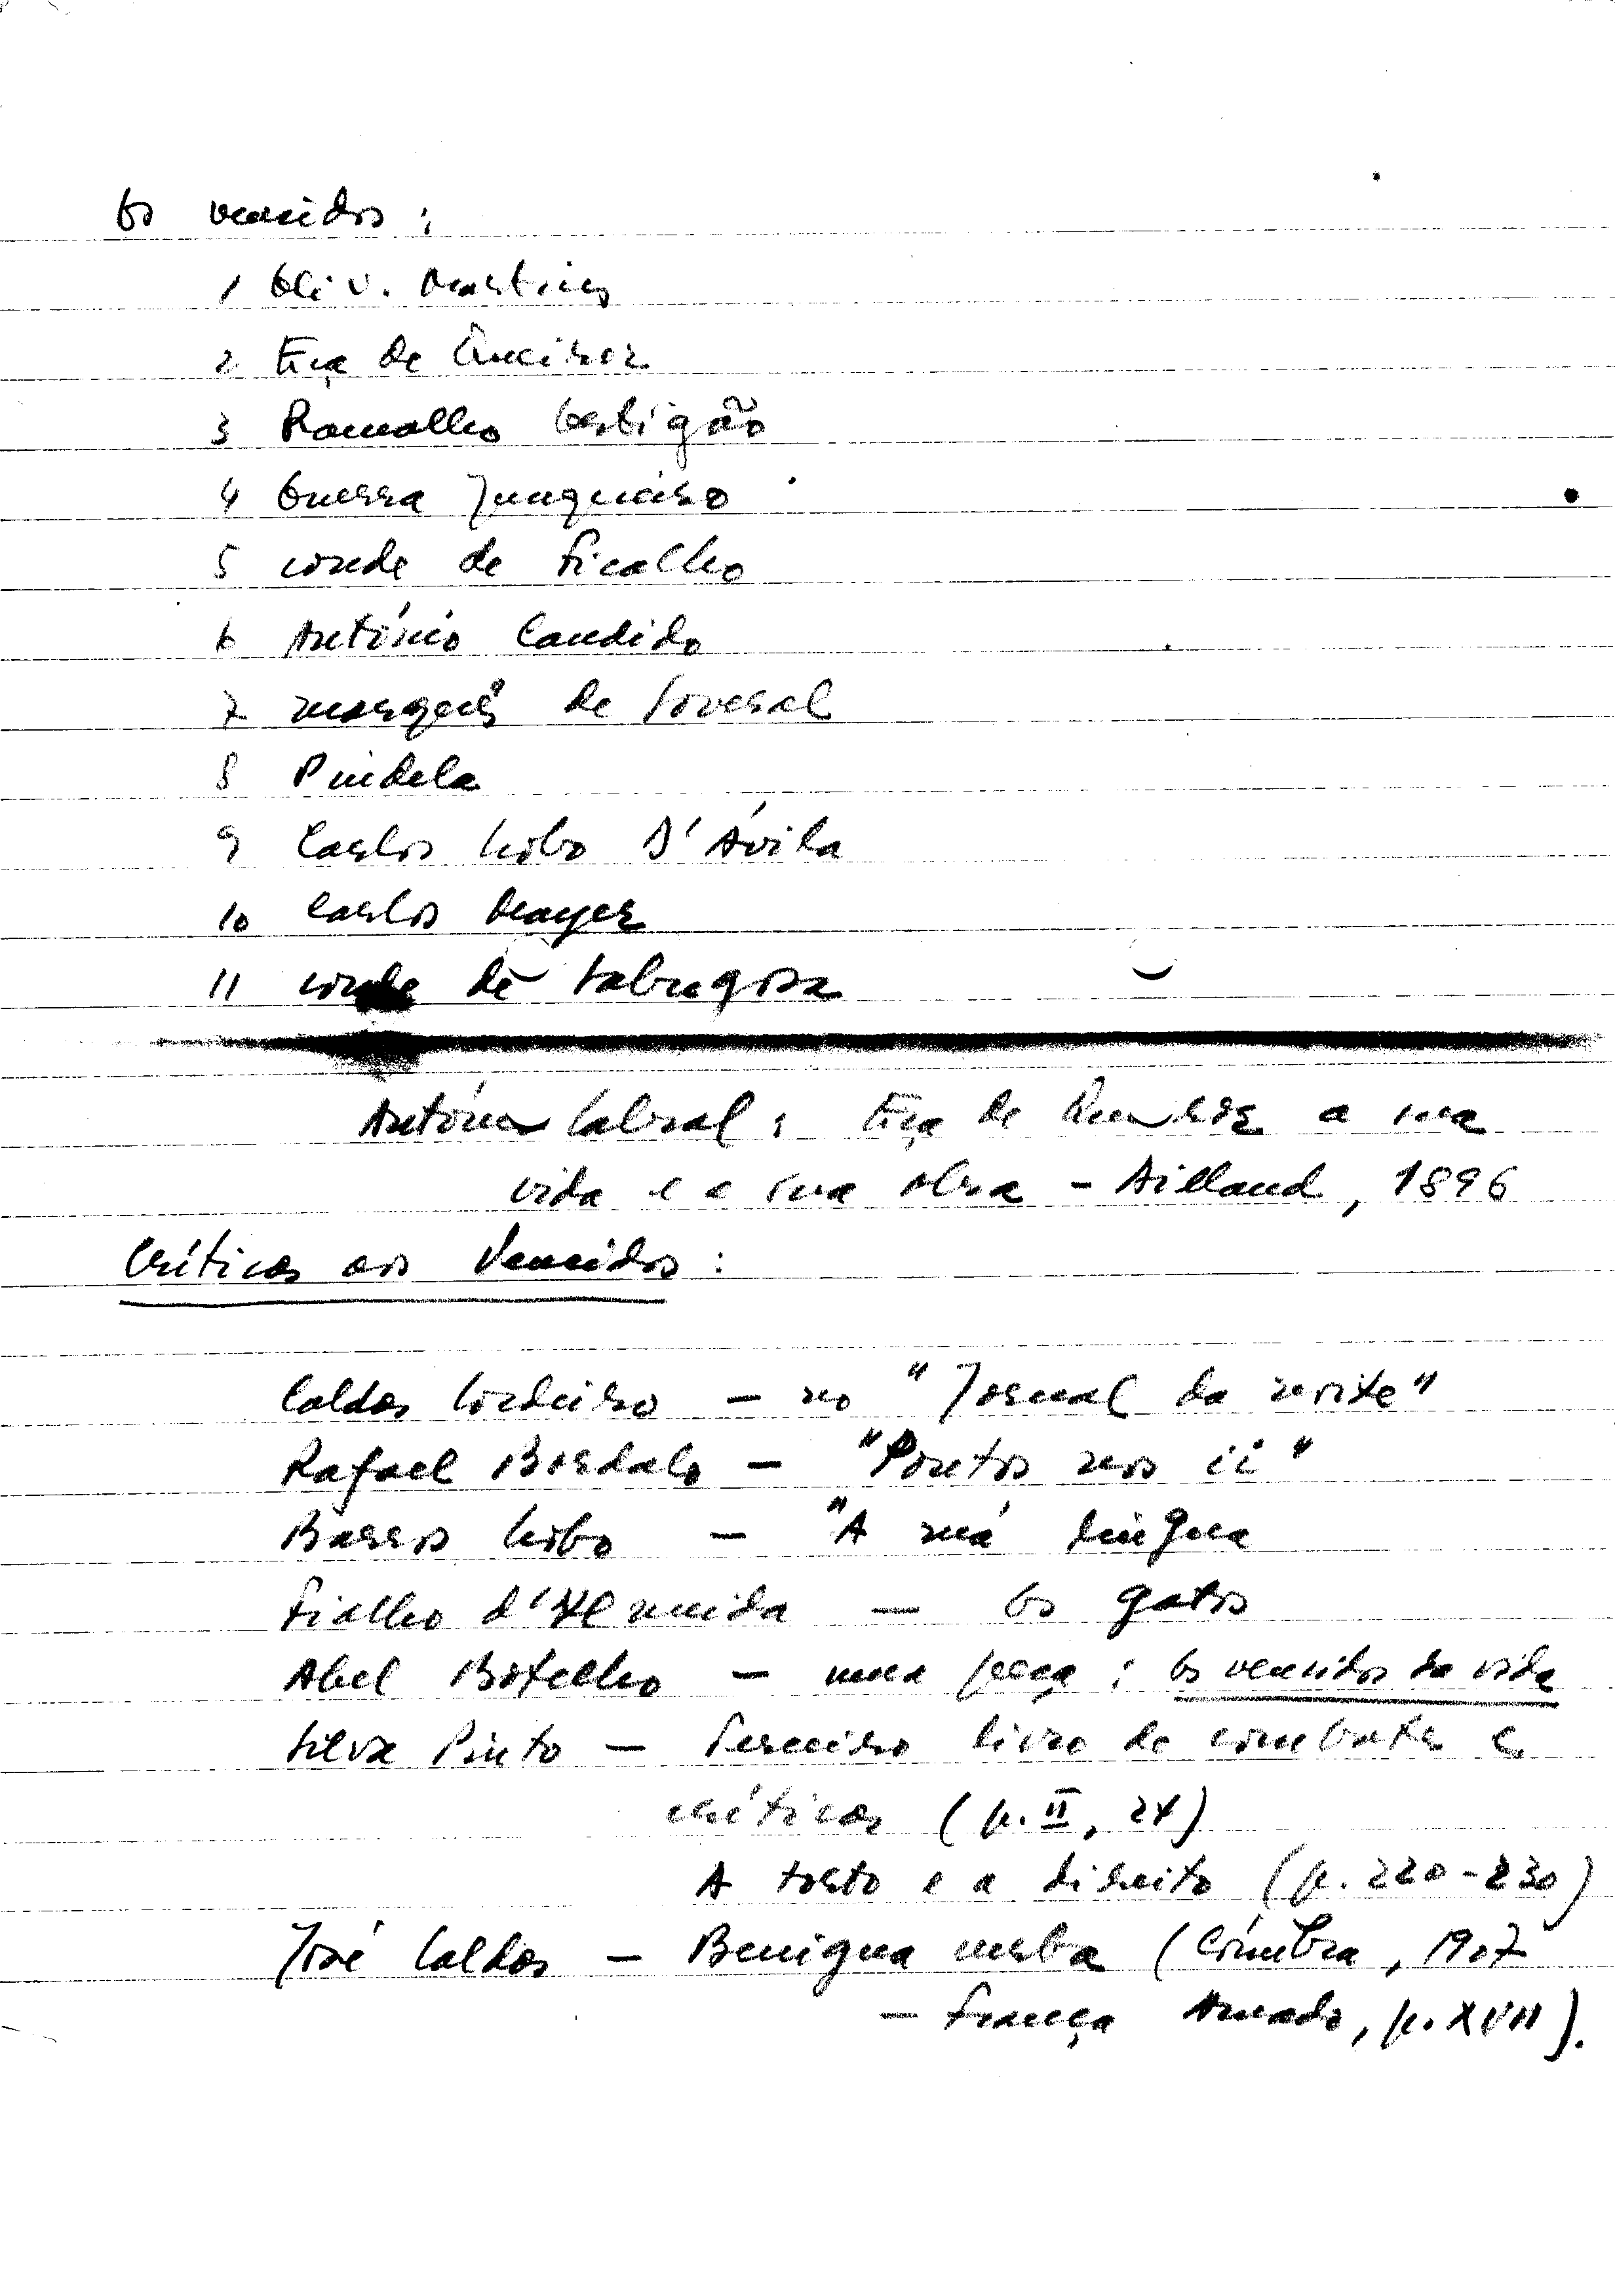 Os vencidos :
1 Oliv. Martins
2 Eça de Queiroz
3 Ramalho Ortigão
4 Guerra Junqueiro
5 conde de Ficalho
6 António Candido
7 marquês de Soveral
8 Pindela
9 Carlos Lobo D'Ávila
10 Carlos Mayer
11 conde de Sabugosa
António Cabral : Eça de Queiroz a sua
vida e a sua obra - Ailland, 1896
Críticas aos Vencidos :
Caldas Cordeiro - no "Jornal da noite"
Rafael Bordalo - "Pontos nos ii"
Barros Lobo - "A má língua
Fialho d'Almeida - Os gatos
Abel Botelho - numa peça : Os vencidos da vida
Silva Pinto - Terceiro livro de combates e
críticas (p. II, 24)
A torto e a direito (p. 220-230)
José Caldas - Benigna verba (Coimbra, 1907
- França Amado, p. XVII).